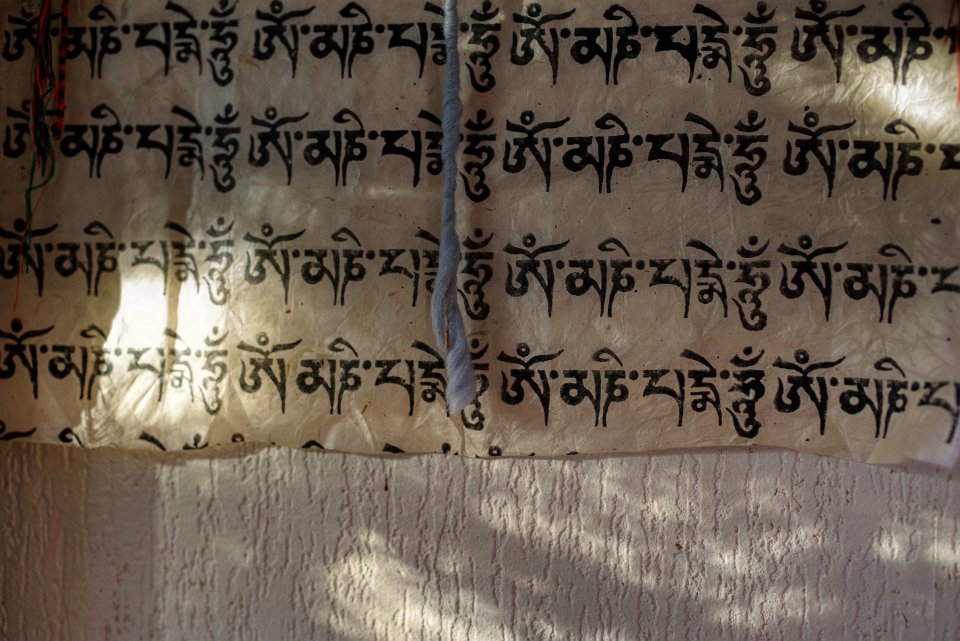 ཨོཾ་མཎི་པདྨེ་ཧཱུྃ ཨོཾ་མཎི་པདྨེ་ཧཱུྃ ཨོཾ་མཎི་པདྨེ་ཧཱུྃ ཨོཾ་མཎི་
ཨོཾ་མཎི་པདྨེ་ཧཱུྃ ཨོཾ་མཎི་པདྨེ་ཧཱུྃ ཨོཾ་མཎི་པདྨེ་ཧཱུྃ ཨོཾ་མཎི་
ཨོཾ་མཎི་པདྨེ་ཧཱུྃ ཨོཾ་མཎི་པདྨེ་ཧཱུྃ ཨོཾ་མཎི་པདྨེ་ཧཱུྃ ཨོཾ་མཎི་
ཨོཾ་མཎི་པདྨེ་ཧཱུྃ ཨོཾ་མཎི་པདྨེ་ཧཱུྃ ཨོཾ་མཎི་པདྨེ་ཧཱུྃ ཨོཾ་མཎི་